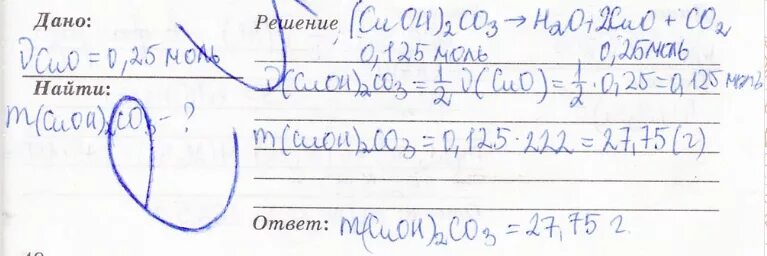 Дано:
νCuO = 0,25 моль
Найти:
m(CuOH)2CO3 - ?
Решение, (CuOH)2CO3 → H2O + 2CuO + CO2
0,125 моль 0,25 моль
ν(CuOH)2CO3 = 1/2 ν(CuO) = 1/2 · 0,25 = 0,125 моль
m(CuOH)2CO3 = 0,125 · 222 = 27,75 (г)
Ответ: m(CuOH)2CO3 = 27,75 г.